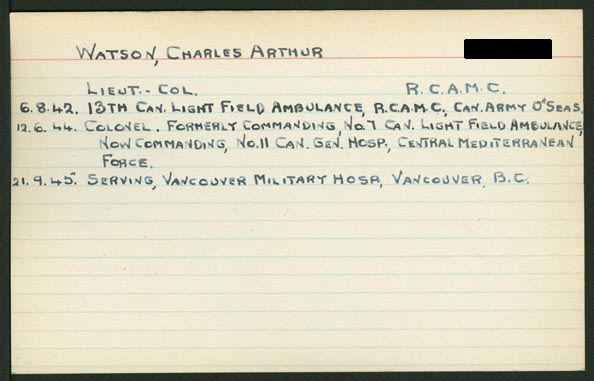 WATSON, CHARLES ARTHUR
LIEUT.-COL. R.C.A.M.C.
6.8.42. 13TH CAN. LIGHT FIELD AMBULANCE, R.C.A.M.C., CAN. ARMY O'SEAS.
12.6.44. COLONEL. FORMERLY COMMANDING, NO.7 CAN. LIGHT FIELD AMBULANCE,
NOW COMMANDING, NO.11 CAN. GEN. HOSP., CENTRAL MEDITERRANEAN
FORCE.
21.9.45. SERVING, VANCOUVER MILITARY HOSP., VANCOUVER, B.C.